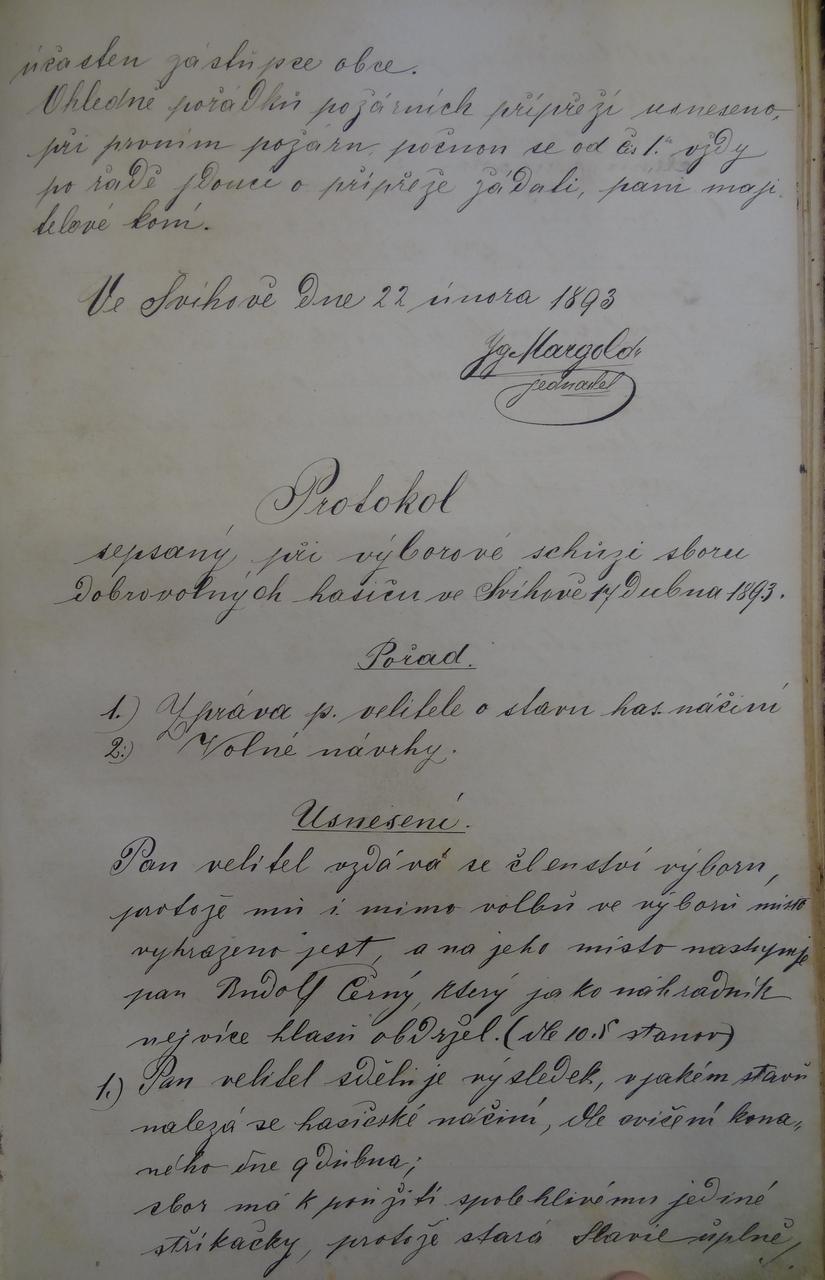 účasten zástupce obce.
Ohledně pořádků požárních přípřeží usneseno,
při prvním požáru, počnou se od čs 1. vždy
po řadě jdouce o přípřeže žádati, pani maji-
telové koní.
Ve Švihově dne 22 února 1893
Jg Margold
jednatel
Protokol
sepsaný při výborové schůzi sboru
dobrovolných hasičů ve Švihově 17 dubna 1893.
Pořad.
1.) Zpráva p. velitele o stavu has. náčiní
2.) Volné návrhy.
Usnesení.
Pan velitel vzdává se členství výboru,
protože mu i mimo volbu ve výboru místo
vyhrazeno jest, a na jeho místo nastupuje
pan Rudolf Černý, který jako náhradník
nejvíce hlasů obdržel. (dle 10.§ stanov)
1.) Pan velitel sděluje výsledek, v jakém stavu
nalezá se hasičské náčiní, dle cvičení kona-
ného dne 9 dubna;
sbor má k použití spolehlivému jediné
stříkačky, protože stará Slavie úplně